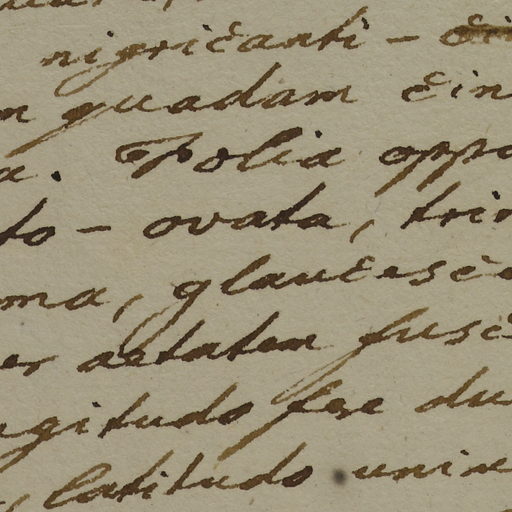 nigricanti - 
quadam cin
a. Folia oppo
to - ovata, trin
ma, glaucesce
er aetatem fusc
gitudo fere du
, latitudo unive